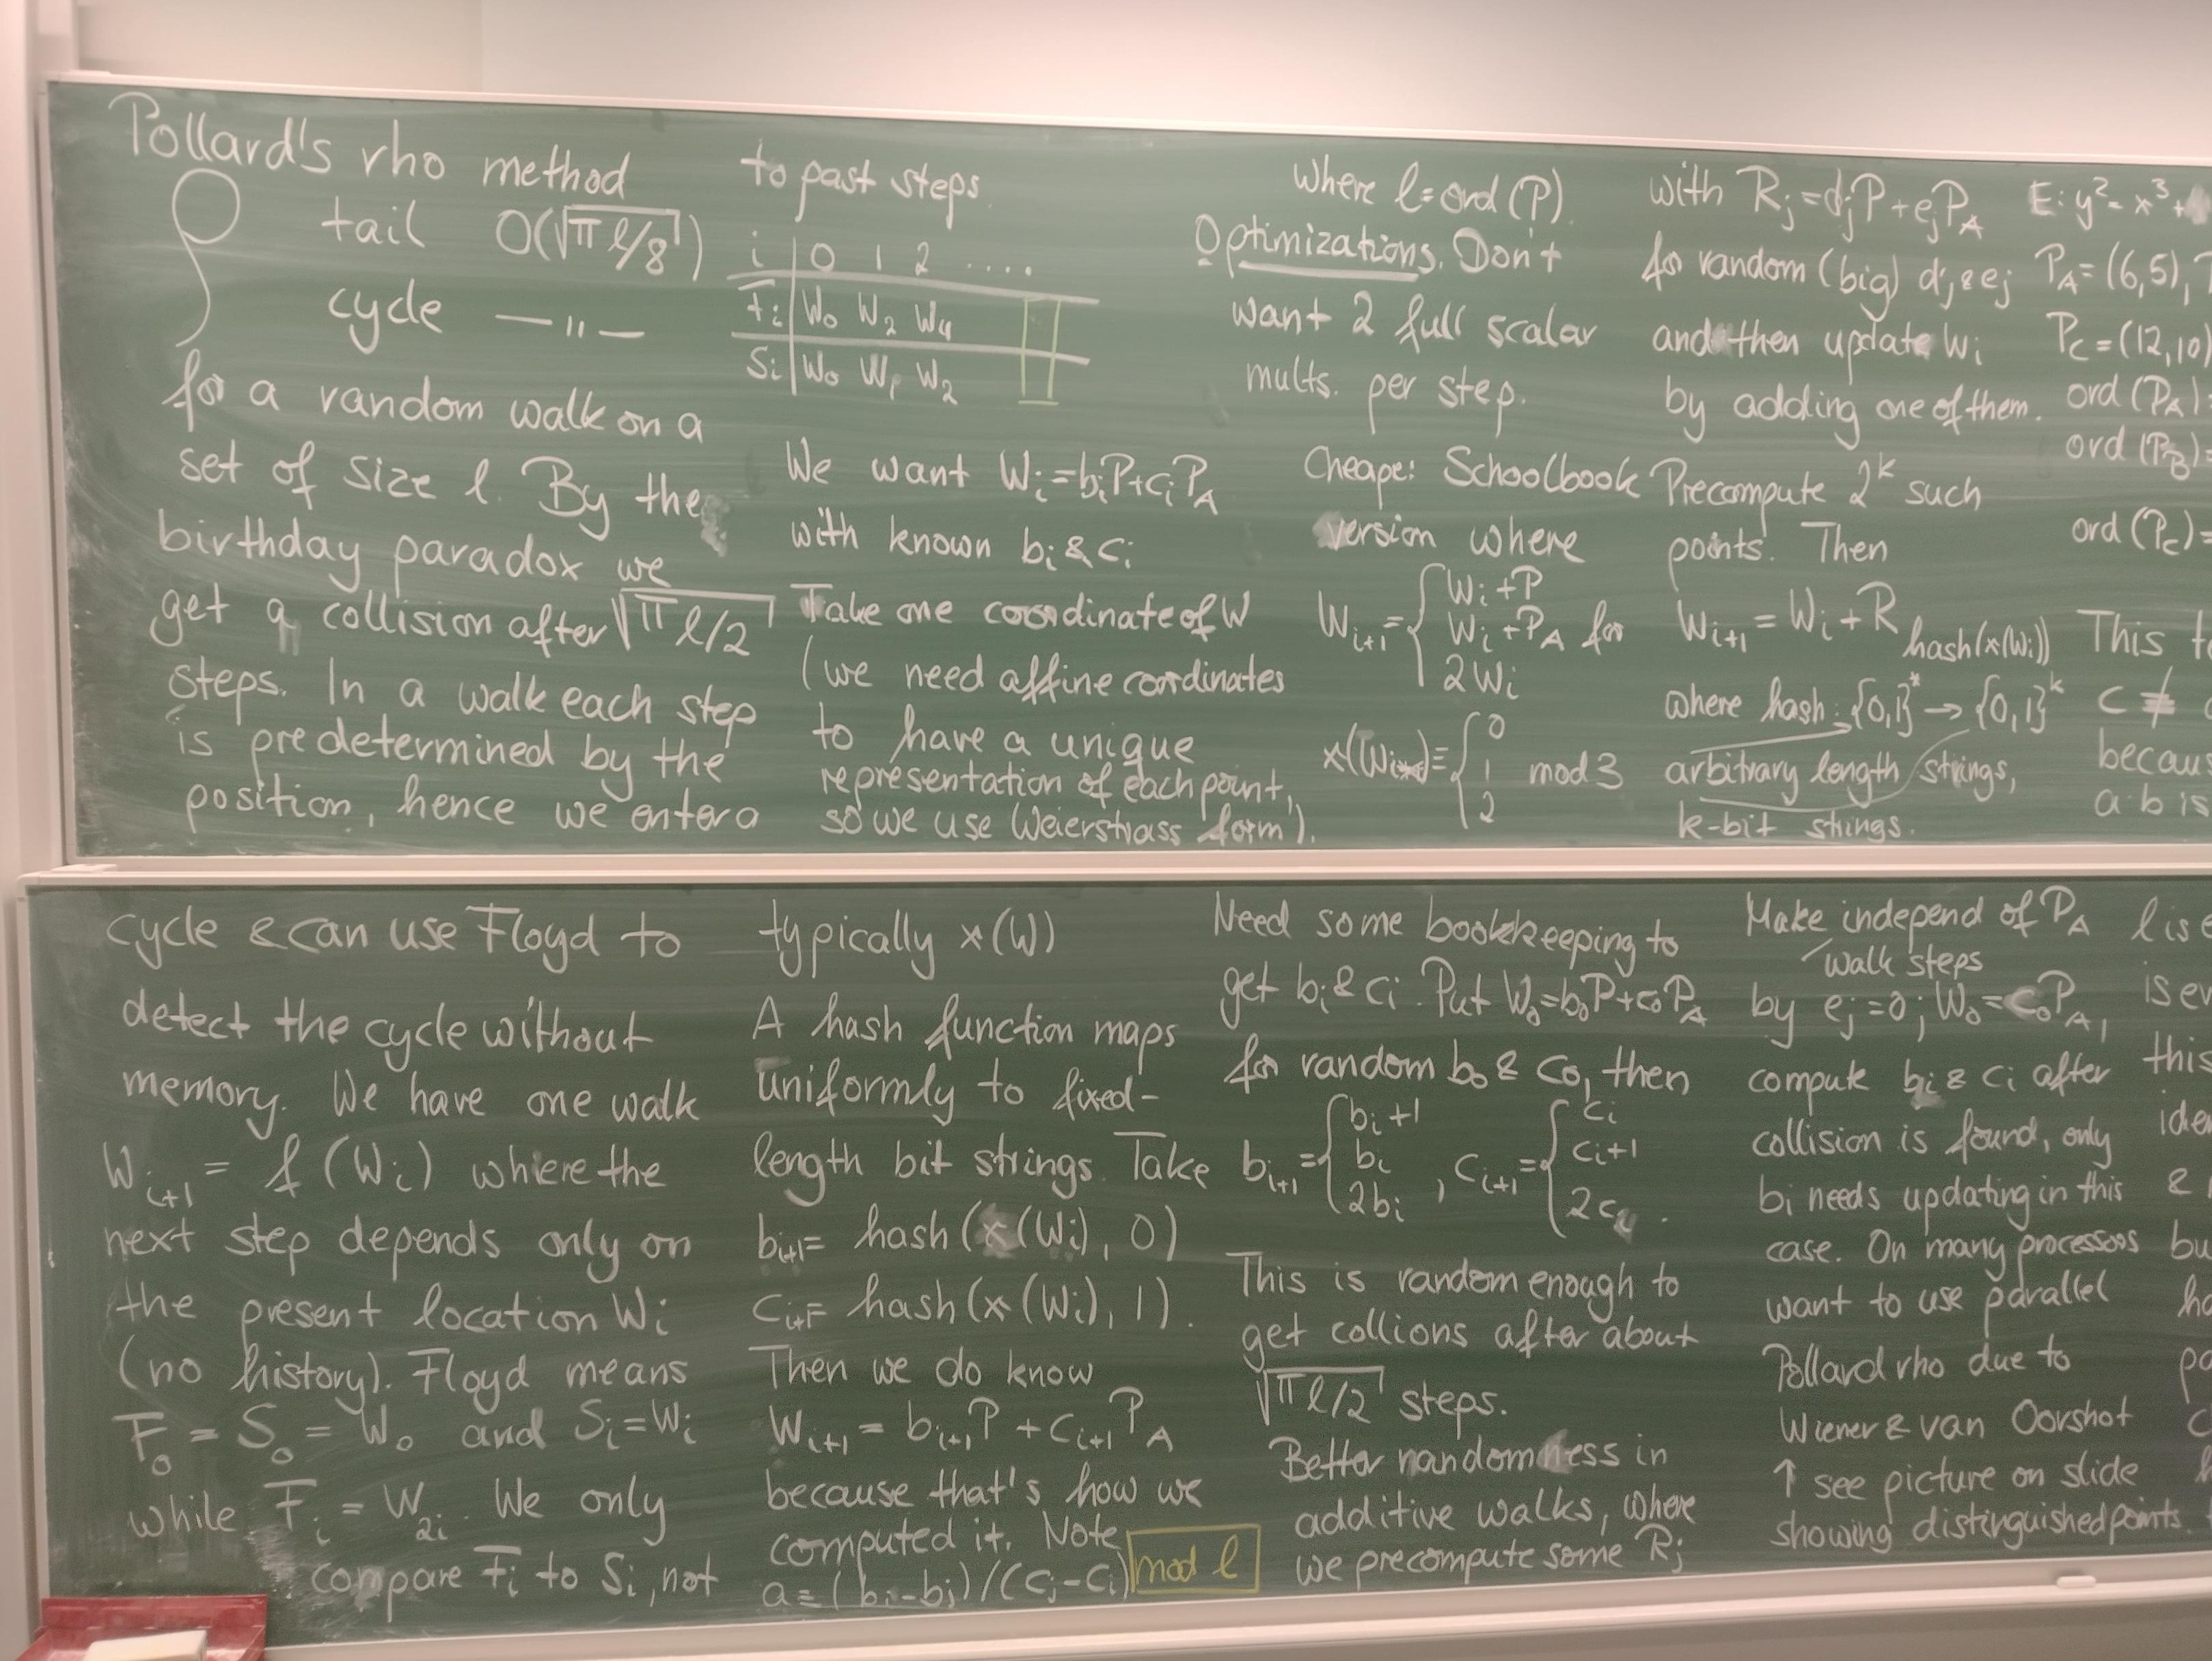 Pollard's rho method
tail O(√πl/8)
cycle —"—
for a random walk on a
set of size l. By the
birthday paradox we
get a collision after √πl/2
steps. In a walk each step
is predetermined by the
position, hence we enter a
cycle & can use Floyd to
detect the cycle without
memory. We have one walk
W_{i+1} = f(W_i) where the
next step depends only on
the present location W_i
(no history). Floyd means
F_0 = S_0 = W_0 and S_i = W_i
while F_i = W_{2i}. We only
compare F_i to S_i, not
to past steps.
i 0 1 2 ....
F_i W_0 W_2 W_4
S_i W_0 W_1 W_2
We want W_i = b_iP + c_iP_A
with known b_i & c_i
Take one coordinate of W
(we need affine coordinates
to have a unique
representation of each point,
so we use Weierstrass form).
typically x(W)
A hash function maps
uniformly to fixed-
length bit strings. Take
b_{i+1} = hash(x(W_i), 0)
c_{i+1} = hash(x(W_i), 1).
Then we do know
W_{i+1} = b_{i+1}P + c_{i+1}P_A
because that's how we
computed it. Note
a = (b_i-b_j)/(c_j-c_i) mod l
where l = ord(P).
Optimizations. Don't
want 2 full scalar
mults. per step.
Cheape: Schoolbook
version where
W_{i+1} = { W_i + P
W_i + P_A for
2W_i
x(W_i) = { 0
1 mod 3
2
Need some bookkeeping to
get b_i & c_i. Put W_0 = b_0P + c_0P_A
for random b_0 & c_0, then
b_{i+1} = { b_i+1 b_i 2b_i , c_{i+1} = { c_i c_i+1 2c_i .
This is random enough to
get collions after about
√πl/2 steps.
Better randomness in
additive walks, where
we precompute some R_j
with R_j = d_jP + e_jP_A
for random (big) d_j & e_j
and then update W_i
by adding one of them.
Precompute 2^k such
points. Then
W_{i+1} = W_i + R_{hash(x(W_i))}
where hash: {0,1}^* → {0,1}^k
arbitrary length strings,
k-bit strings.
Make independ of P_A
walk steps
by e_j = 0; W_0 = c_0P_A,
compute b_i & c_i after
collision is found, only
b_i needs updating in this
case. On many processors
want to use parallel
Pollard rho due to
Wiener & van Oorshot
↑ see picture on slide
showing distinguished points.
E: y² = x³ +
P_A = (6,5),
P_C = (12,10)
ord(P_A) =
ord(P_B) =
ord(P_C) =
This
c ≠
a·b is
l is
is
this
&